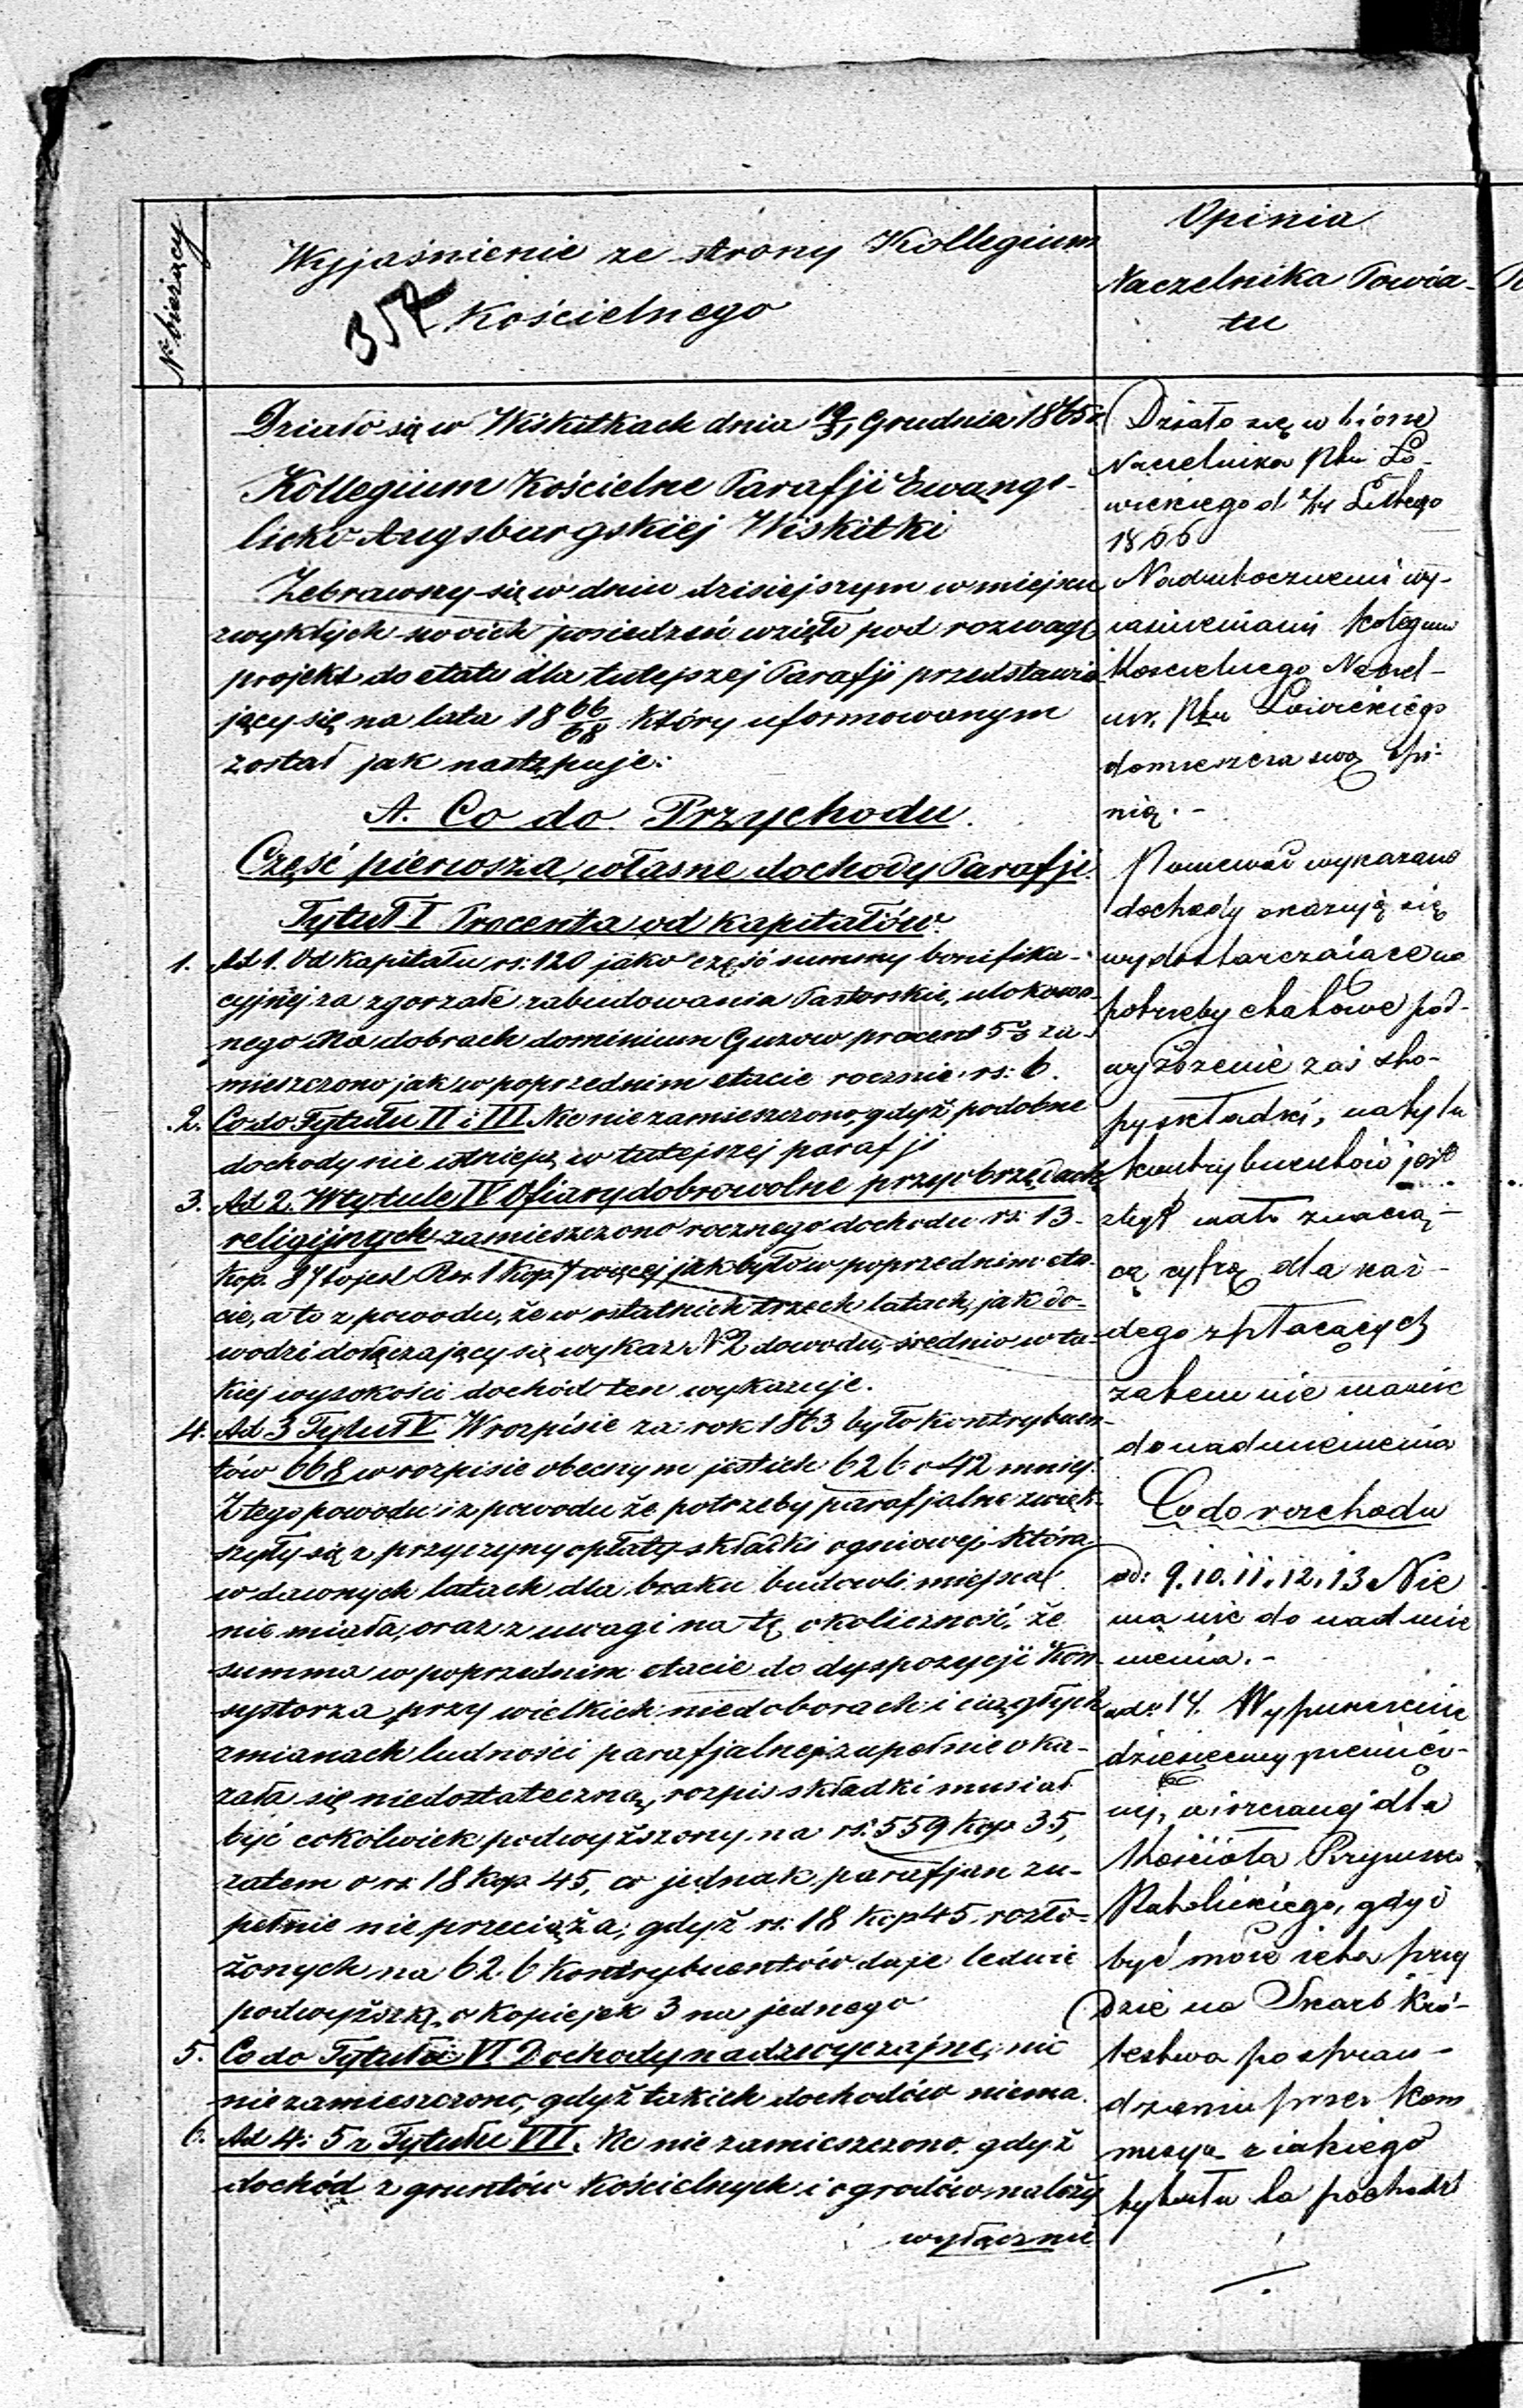 No bieżący
Wyjaśnienie ze strony Kollegium
Kościelnego
357
Opinia
Naczelnika Powia-
tu
Działo się w Wiskitkach dnia 19/31 Grudnia 1865 r.
Kollegium Kościelne Parafji Ewange-
licko-Augsburgskiej Wiskitki
Zebrawszy się w dniu dzisiejszym w miejscu
zwykłych swoich posiedzeń wzięło pod rozwagę
projekt do etatu dla tutejszej Parafji przedstawia-
jący się na lata 18 66/68 który uformowanym
został jak następuje:
A. Co do Przychodu.
Część pierwsza, własne dochody Parafji.
Tytuł I Procenta od kapitałów.
1. Ad 1. Od kapitału rs: 120 jako część summy bonifika-
cyjnej za zgorzałe zabudowania Pastorskie, ulokowa-
nego na dobrach dominium Guzow procent 5% za-
mieszczono jak w poprzednim etacie rocznie rs: 6.
2. Co do Tytułu II i III. Nic nie zamieszczono, gdyż podobne
dochody nie istnieją w tutejszej parafji
3. Ad 2. W tytule IV Ofiary dobrowolne przy obrzędach
religijnych zamieszczono rocznego dochodu rs: 13
kop. 87 to jest Rsr. 1 kop. 7 więcej jak było w poprzednim eta-
cie, a to z powodu, że w ostatnich trzech latach, jak do-
wodzi dołączający się wykaz No 2 dowodu, średnio w ta-
kiej wysokości dochód ten wykazuje.
4. Ad 3 Tytuł V. W rozpisie za rok 1863 było kontrybuen-
tów 668 w rozpisie obecnym jest ich 626 o 42 mniej.
Z tego powodu i z powodu że potrzeby parafjalne zwięk-
szyły się z przyczyny opłaty składki ogniowej która
w dawnych latach dla braku budowli miejsca
nie miała, oraz z uwagi na tę okoliczność, że
summa w poprzednim etacie do dyspozycji Kon-
systorza przy wielkich niedoborach i ciągłych
zmianach ludności parafjalnej zupełnie oka-
zała się niedostateczną, rozpis składki musiał
być cokolwiek podwyższony na rs: 559 kop 35,
zatem o rs 18 kop 45, co jednak parafjan zu-
pełnie nie przeciąża; gdyż rs: 18 kop 45 rozło-
żonych na 626 kontrybuentów daje ledwie
podwyżkę o kopiejek 3 na jednego
5. Co do Tytułu VI Dochody nadzwyczajne, nic
nie zamieszczono, gdyż takich dochodów niema.
6. Ad 4: 5 z Tytułu VII. Nic nie zamieszczono, gdyż
dochód z gruntów Kościelnych i ogrodów należy
wyłącznie
Działo się w biórze
Naczelnika Ptu Ło-
wickiego d. Lutego
1866
Nad wy-
iaśnieniami Kolegium
Koscielnego Naczel-
nik Ptu Łowickiego
domieszcza swą opi-
nią. -
Ponieważ wykazane
dochody okazują się
wydostarczaiące na
potrzeby etatowe pod-
wyższenie zaś sto-
py składki, na tylu
kontrybuentów jest
zbyt mało znaczą-
cą cyfrą dla każ-
dego z płacących
zatem nie ma nic
do nadmienienia
Co do rozchodu
ad: 9. 10. 11. 12. 13. Nie
ma nic do nadmie
nienia. -
ad: 14. Wypuszczenie
dziesięciny pienięż-
nej, uiszczanej dla
Kościoła Rzymsko
Katolickiego, gdyż
być może że ta przy
dzie na Skarb Kró-
lestwa po spraw-
dzeniu przez Kom
missya z iakiego
tytułu ta pochodzi